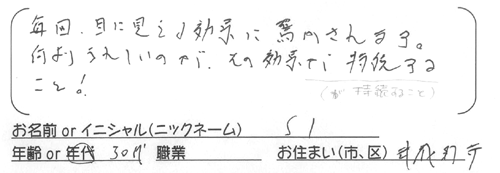 毎回、目に見える効果に驚かされます。
何よりうれしいのが、その効果が持続する
こと!
(が持続すること)
お名前 or イニシャル(ニックネーム) S I
年齢 or 年代 30代 職業 お住まい(市、区)